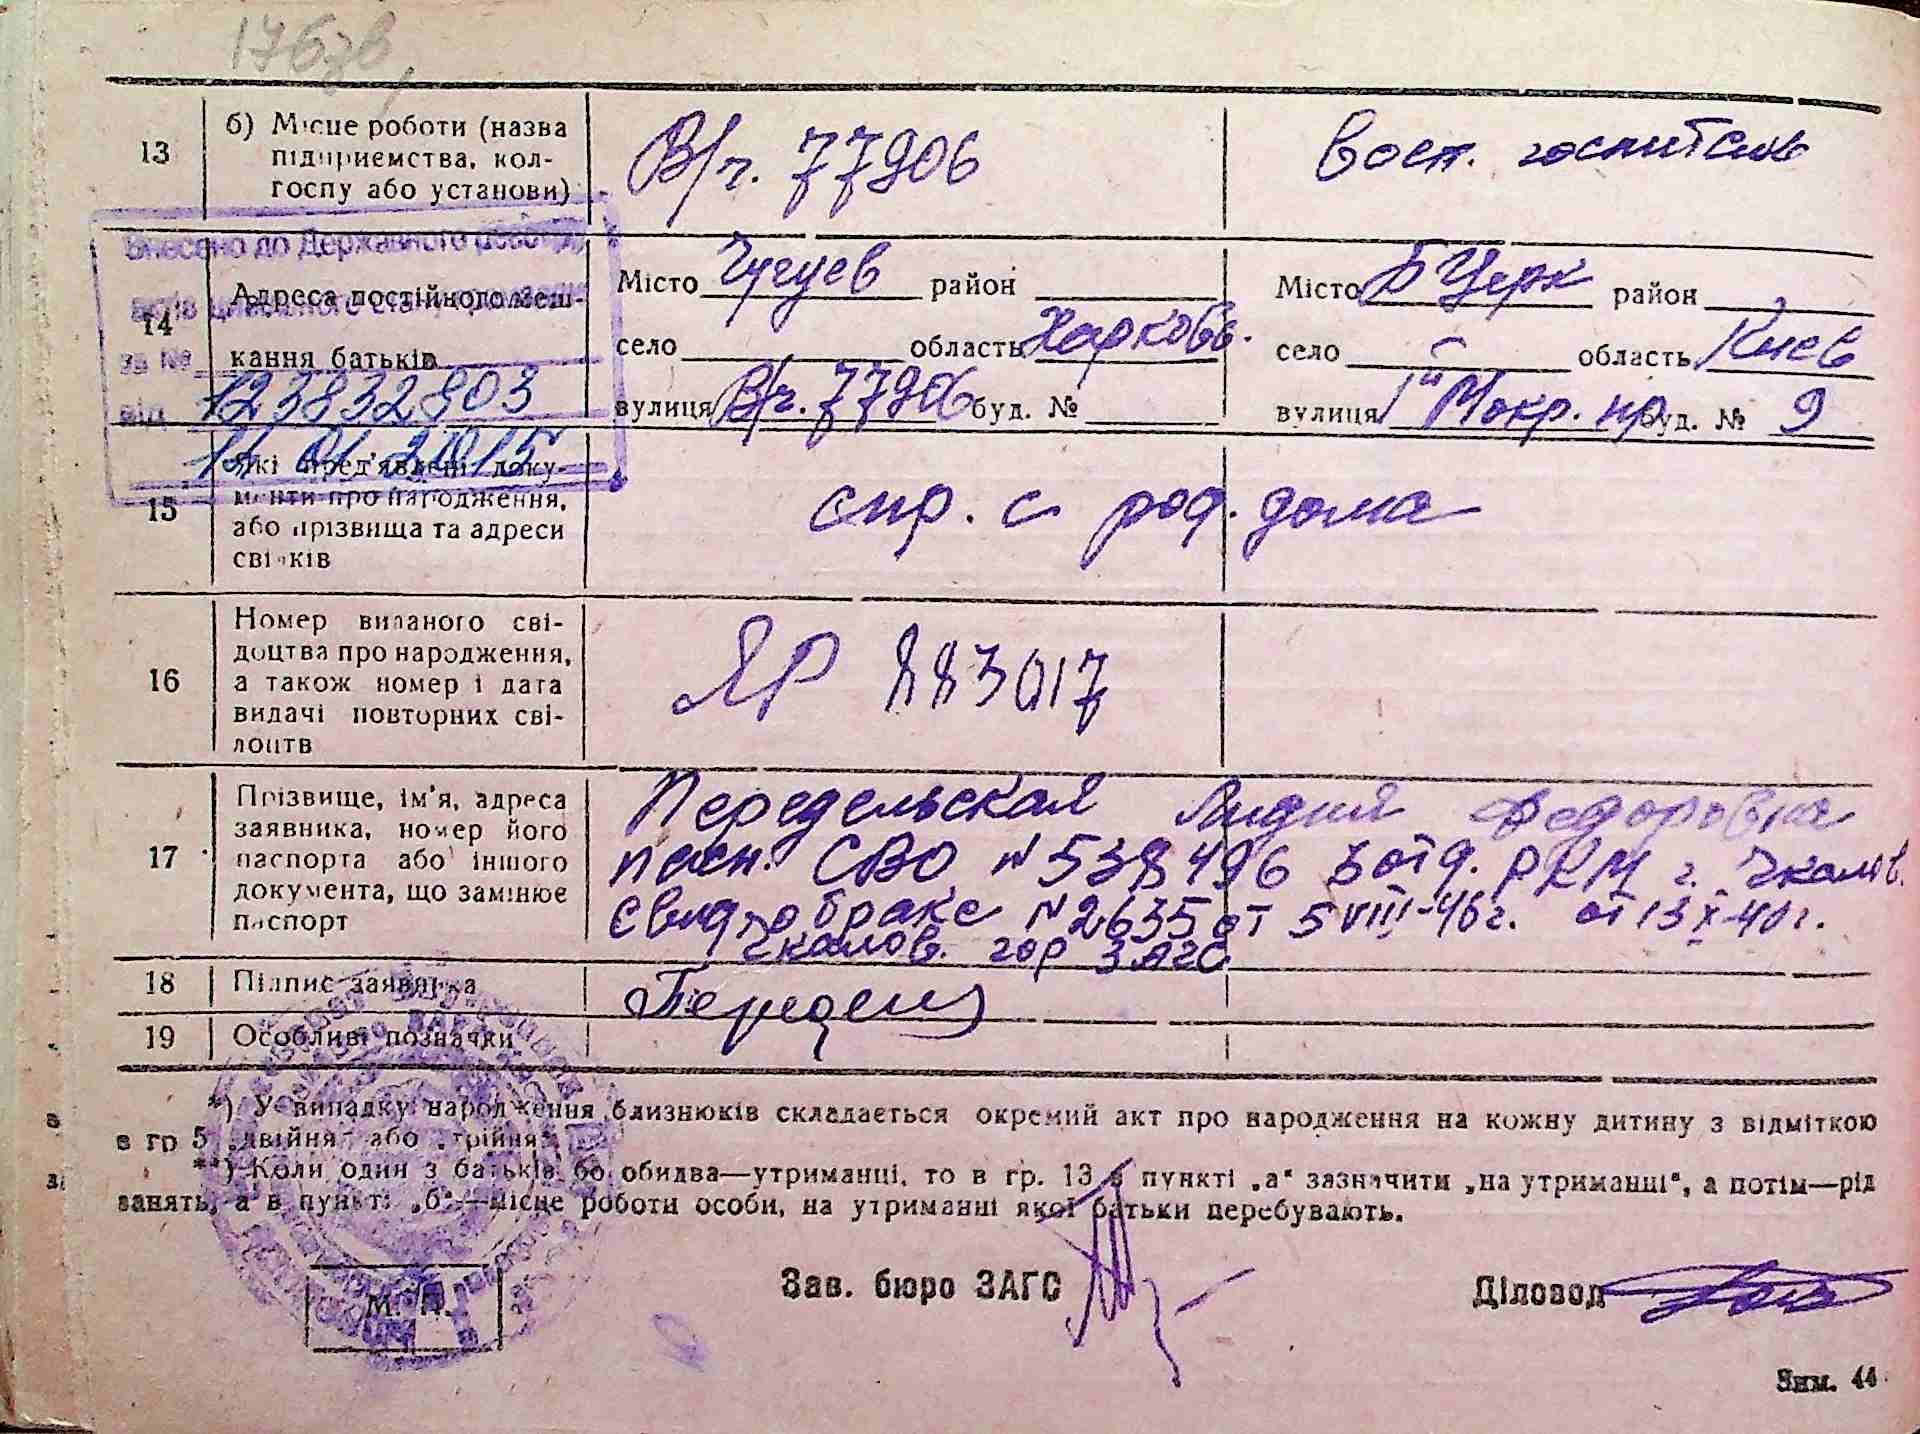 176зв,
13
б) Місце роботи (назва
підприємства, кол-
госпу або установи)
В/ч. 77906
госпиталь
Внесено до Державного реєстру
14
Адреса постійного меш-
кання батьків
за №
123832803
від
Місто Чугуев район
село область Харковь.
вулиця В/ч. 77906 буд. №
Місто Б Церк район
село область Киев
вулиця Мокр. пр буд. № 9
15
Які пред'явлені доку-
менти про народження,
або прізвища та адреси
свідків
спр. с род. дома
16
Номер виданого сві-
доцтва про народження,
а також номер і дата
видачі повторних сві-
доцтв
ЯР 883017
17
Прізвище, ім'я, адреса
заявника, номер його
паспорта або іншого
документа, що замінює
паспорт
Передельская Лидия Федоровна
пасп. СВО № 538496 3 отд. РКМ г. Чкалов.
Свид. о браке № 2635 от 5 VIII-46 г. от 13 X-40 г.
Чкалов. гор ЗАГС
18
Підпис заявника
19
Особливі позначки
*) У випадку народження близнюків складається окремий акт про народження на кожну дитину з відміткою
в гр 5 „двійня“ або „трійня“.
**) Коли один з батьків бо обидва—утриманці, то в гр. 13 в пункті „а“ зазначити „на утриманні“, а потім—рід
занять, а в пункті „б“—місце роботи особи, на утриманні якої батьки перебувають.
М. П.
Зав. бюро ЗАГС
Діловод
Зам. 44